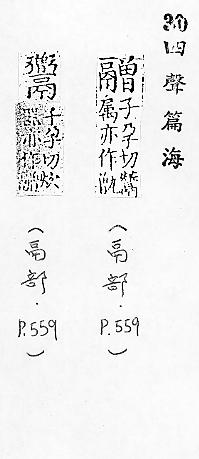 30 四聲篇海
䰝 子孕切鬵
属亦作
(鬲部. P.559)
子孕切
亦作
(鬲部. P.559)